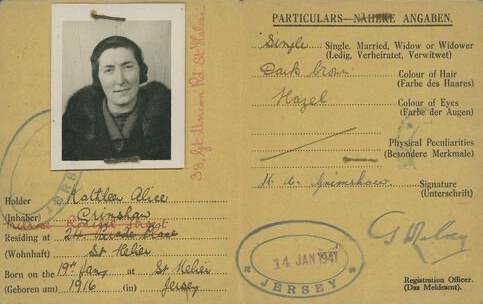 Holder Kathleen Alice
(Inhaber) Crimshaw
Residing at 24
(Wohnhaft) St Helier
Born on the 19th Jany at St Helier
(Geboren am) 1916 (in) Jersey
JERSEY
38, Gt Union Rd St Helier
PARTICULARS—NÄHERE ANGABEN.
Single Single, Married, Widow or Widower
(Ledig, Verheiratet, Verwitwet)
Dark brown Colour of Hair
(Farbe des Haares)
Hazel Colour of Eyes
(Farbe der Augen)
Physical Peculiarities
(Besondere Merkmale)
Signature
(Unterschrift)
14 JAN 1941
JERSEY
Registration Officer.
(Das Meldeamt).